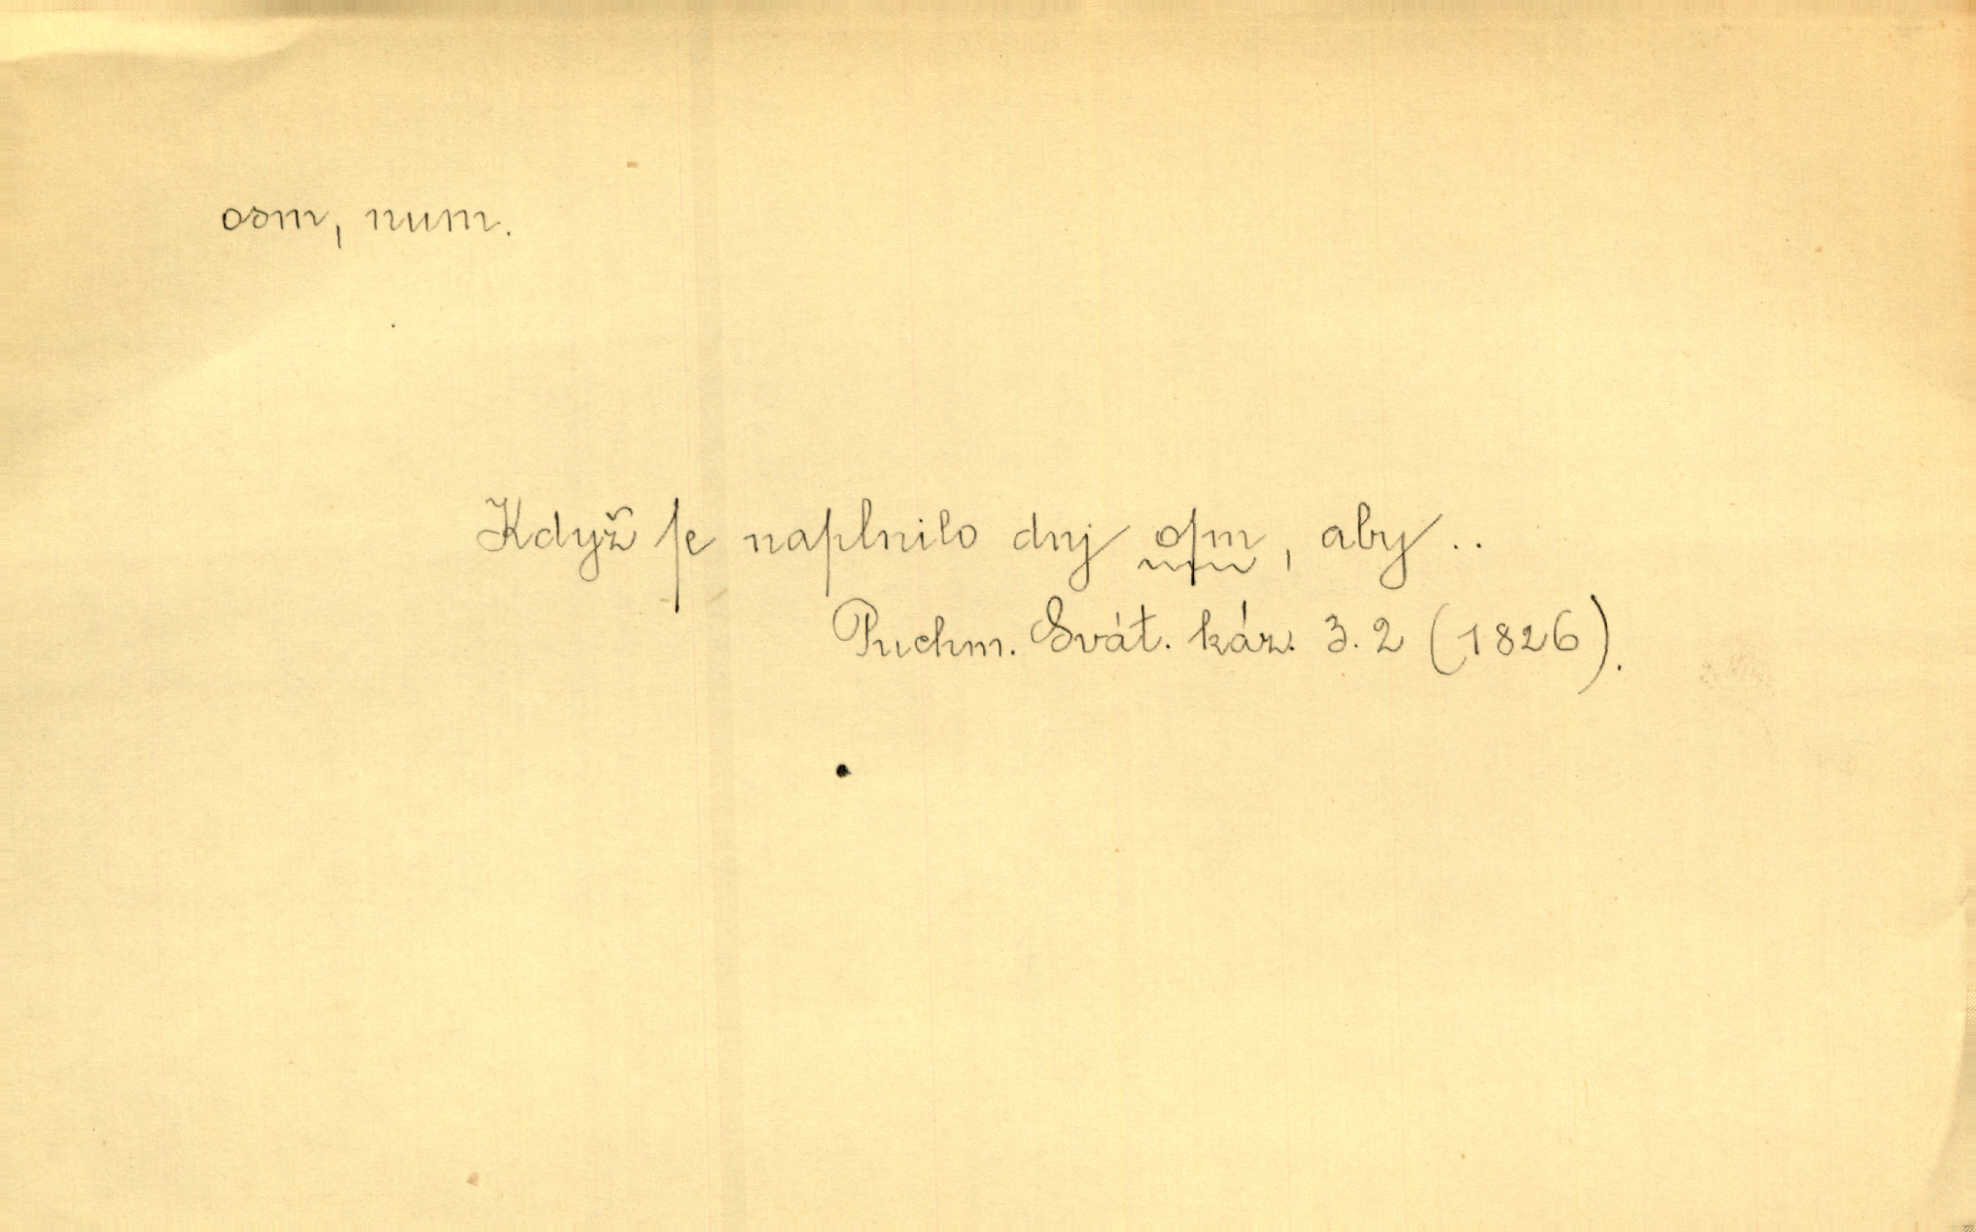 osm, num.
Když ſe naplnilo dnj oſm, aby..
Puchm. Svát. káz. 3.2 (1826).